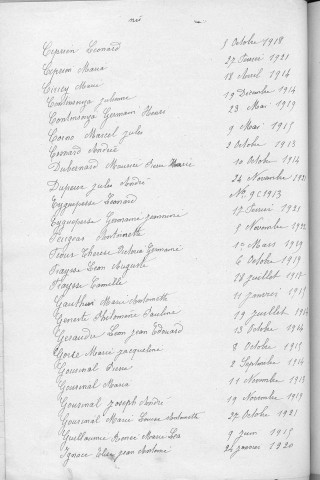 né
Ceprein Leonard 1 Octobre 1918
Ceprein Maria 27 Fevrier 1921
Cincey Marie 18 Avril 1914
Contensouza Julienne 19 Decembre 1914
Contensouza Germain Henri 23 Mai 1919
Corne Marcel Jules 9 Mai 1915
Coronard André 2 Octobre 1913
Dubernard Maurice Pierre Marie 10 Octobre 1914
Dupeux Jules André 24 Novembre 1921
Eyguepesse Leonard
Eyguepesse Germaine Jeannine 17 Fevrier 1921
Antoinette 8 Novembre
Therese Victoria Germaine 1 Mars 1919
Fraysse Leon Auguste 6 Octobre 1919
Fraysse Camille 18 Juillet
Gauthier Marie Antoinette 11 Janvier 1915
Geneste Philomène Pauline 19 Juillet 1914
Geraudie Leon Jean Edouard 13 Octobre 1914
Gorse Marie Jacqueline 8 Octobre 1919
Goursinal Pierre 2 Septembre 1914
Goursinal Maria 11 Novembre 1913
Goursinal Joseph André 19 Novembre 1919
Goursinal Marie Louise Antoinette 27 Octobre 1921
Guillaume Renée Marie 9 Juin 1915
Ignace Jean Antoine 24 Janvier 1920